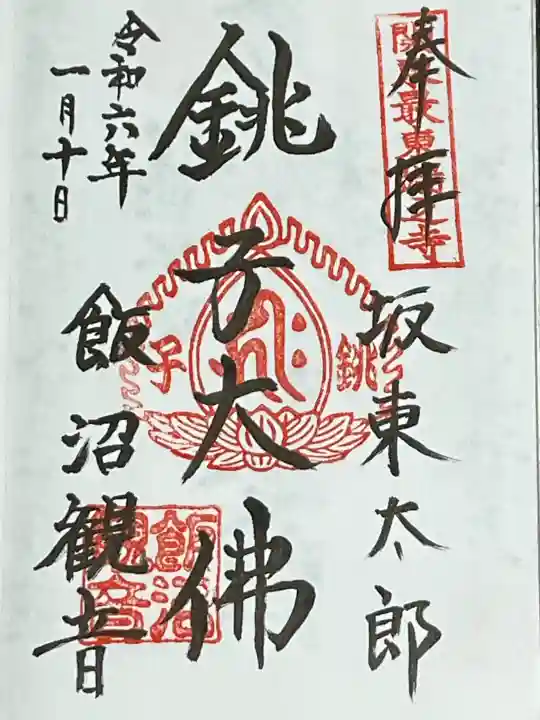 奉拝
坂東太郎
銚子大佛
令和六年
一月十日
飯沼観音
銚子
飯沼
観音